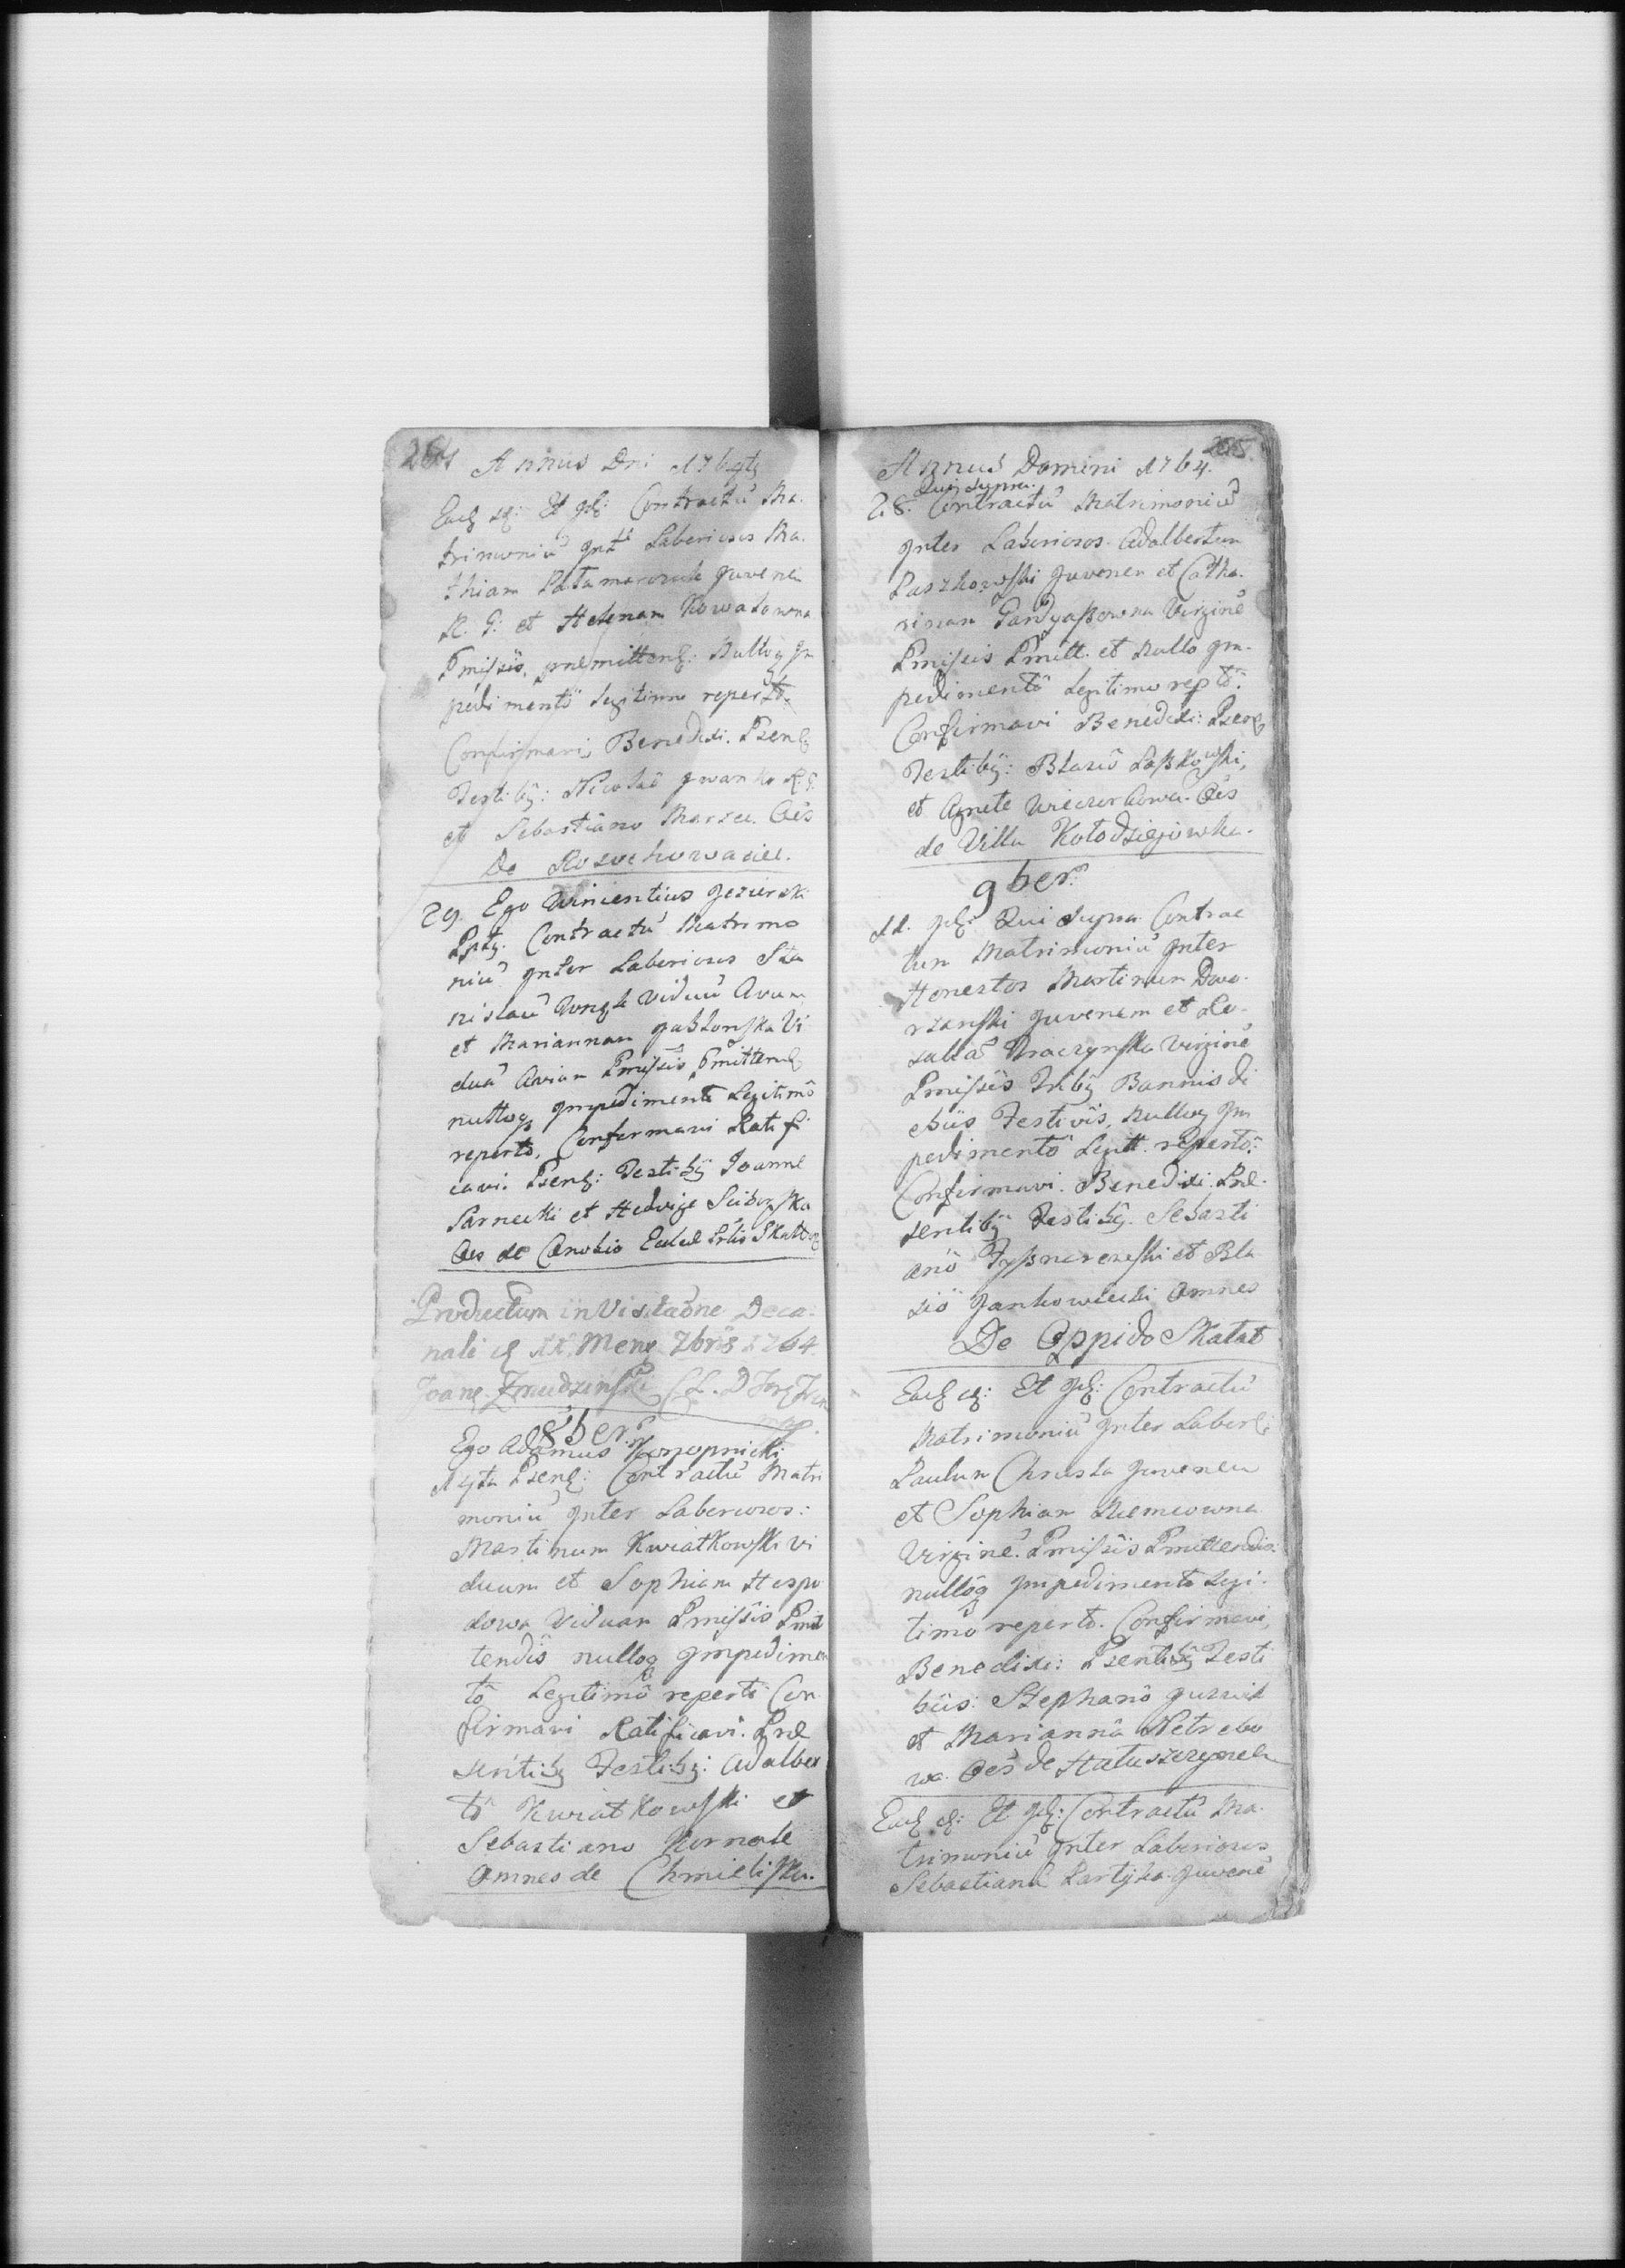 264 Annus Dni 1764tg
Eadē dē: Et Idē: Contractū Ma.
trimoniū Int Laboriosos Ma.
thiam juvenem
R. G: et Helenam Kowalowna
Pmissis, prēmittend: Nulloq Im
pedimentō Legitimo repertō
Confirmavi, Benedixi. Psenb
Testibg: Nicolaō Iwanko R: G:
et Sebastiano Marzec. Oēs
De Rozochowaciec.
29. Ego Wincentius Jezierski
Contractū Matrimo
niū Inter Laboriosos Sta
nislaū viduū
et Mariannam Jabłonska Vi
duā Pmissis Pmittend
nulloq Impedimentō Legitimō
repertō, Confirmavi Ratifi
cavi. Psenb: Testibg Joanne
Sarnecki et Hedvige Sciborska
Oes de Eccłae Skałat
Productum in Visitaōne Deca
nali d 11. Mens 7bris 1764.
Joane Zmudzinski
8ber.
Ego Adamus Konopnicki
Contractū Matri
moniū Inter Laboriosos:
Martinum Kwiatkowski vi
duum et Sophiam Hospo
dowa Viduam Pmissis Pmit
tendis nulloq Impedimen
tō Legitimō repertō Con
firmavi Ratificavi. Prae
sentibg Testibg: Adalber
tō Kwiatkowski et
Sebastiano Kornale
Omnes de Chmieliska.
265.
Annus Domini 1764.
Qui supra.
28. Contractū Matrimoniū
Inter Laboriosos Adalbertum
Paszkowski Juvenem et Catha.
rinam Virginē
Pmissis Pmitt. et Nullo Im.
pedimentō Legitimo reptō.
Confirmavi Benedixi: Psenb
Testibg: Blasiō Laszkowski,
et Agnete Wieczorkowa. Oēs
de Villa Kołodziejowka.
9ber:
11. Idē: Qui Supra Contrac
tum Matrimoniū Inter
Honestos Martinum Dwo.
rzanski Juvenem et Ro.
saliā Kraczynska Virginē
Pmissis Tribg Bannis di
ebus Festivis, nulloq Im
pedimentō Legitt. repertō:
Confirmavi. Benedixi. Prae.
sentibg Testibg. Sebasti
anō et Bla
siō Jankowiecki Omnes
De Oppido Skałat
Eadē dē: Et Idē: Contractū
Matrimoniū Inter Labor:
Paulum Juvenem
et Sophiam Niemcowna
Virginē. Pmissis Pmittendis
nulloq Impedimentō Legi.
timō repertō. Confirmavi,
Benedixi: Psentibg Testi
bus: Stephanō
et Mariannā Netrebo
wa. Oēs de Hałuszczyniec
Eadē dē: Et Idē: Contractū Ma.
trimoniū Inter Laboriosos
Sebastianū Juvenē